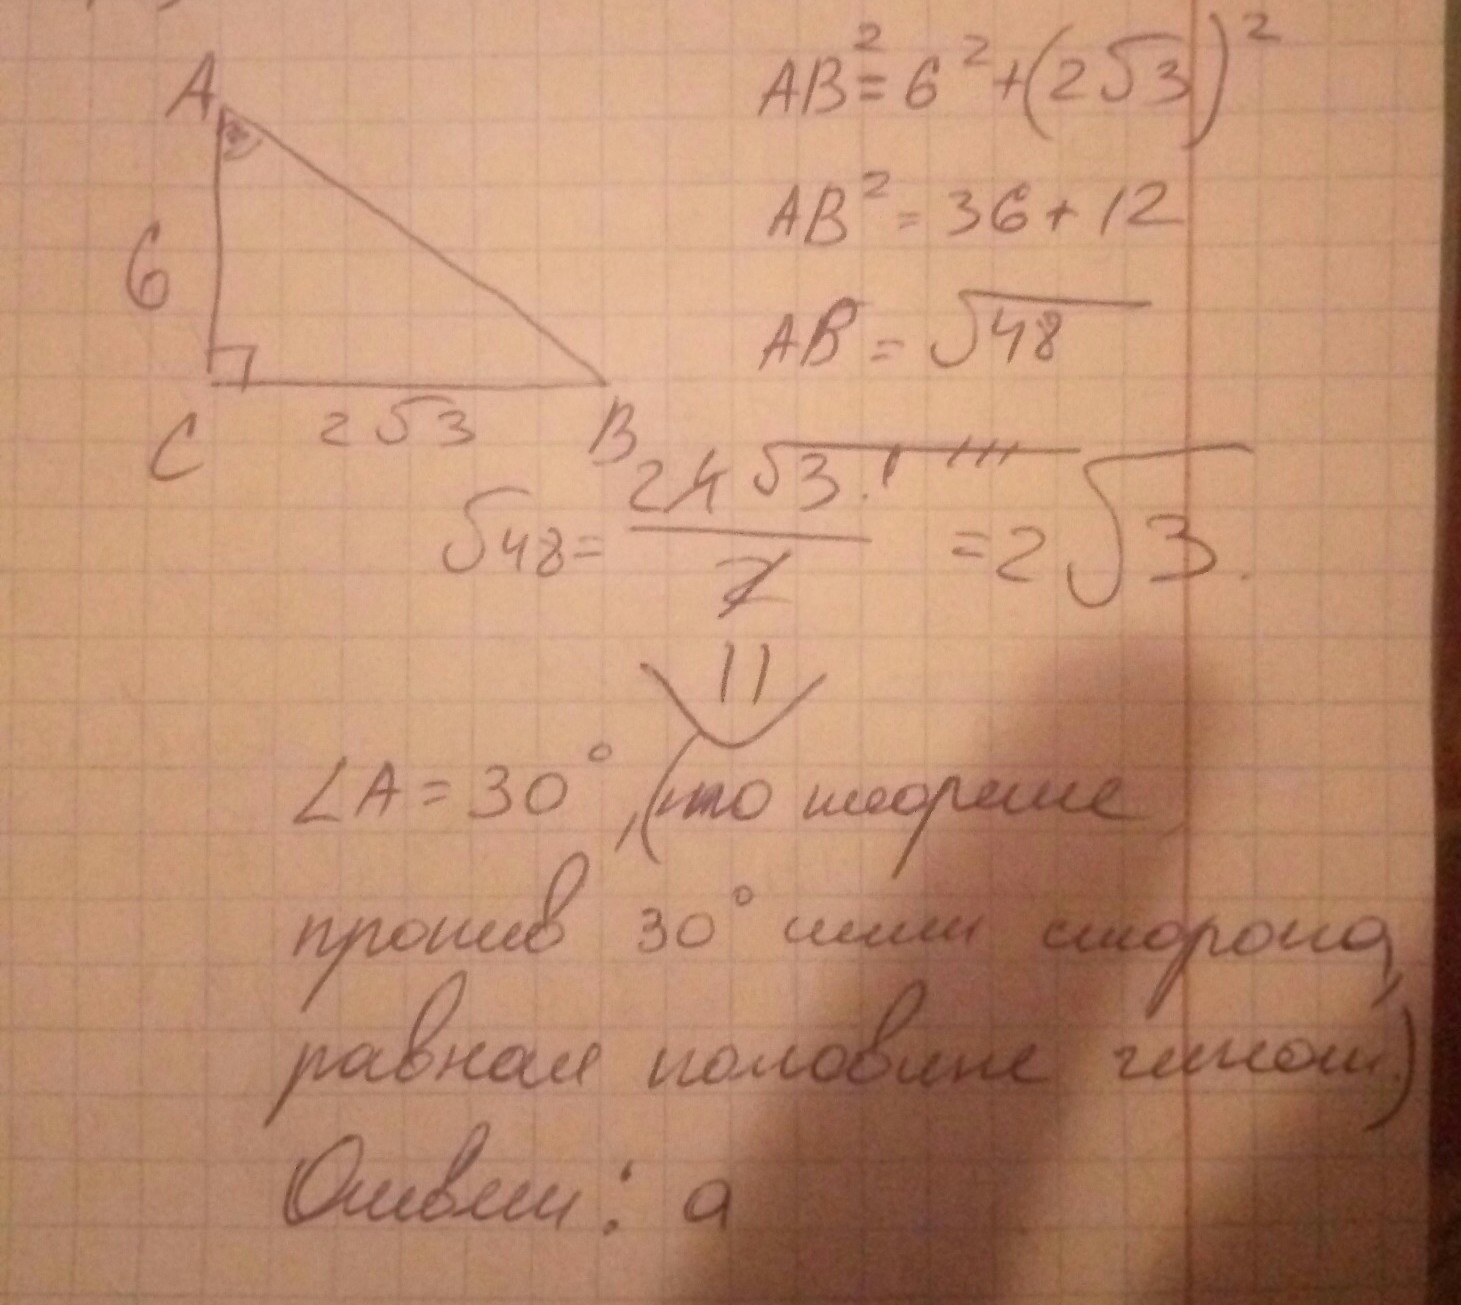 A
AB² = 6² + (2√3)²
6
AB² = 36 + 12
AB = √48
C
2√3
B
√48 = 2 4√3 / 2 = 2√3.
∠A = 30°, (по теореме
против 30° лежит сторона,
равная половине гипот.)
Ответ: а